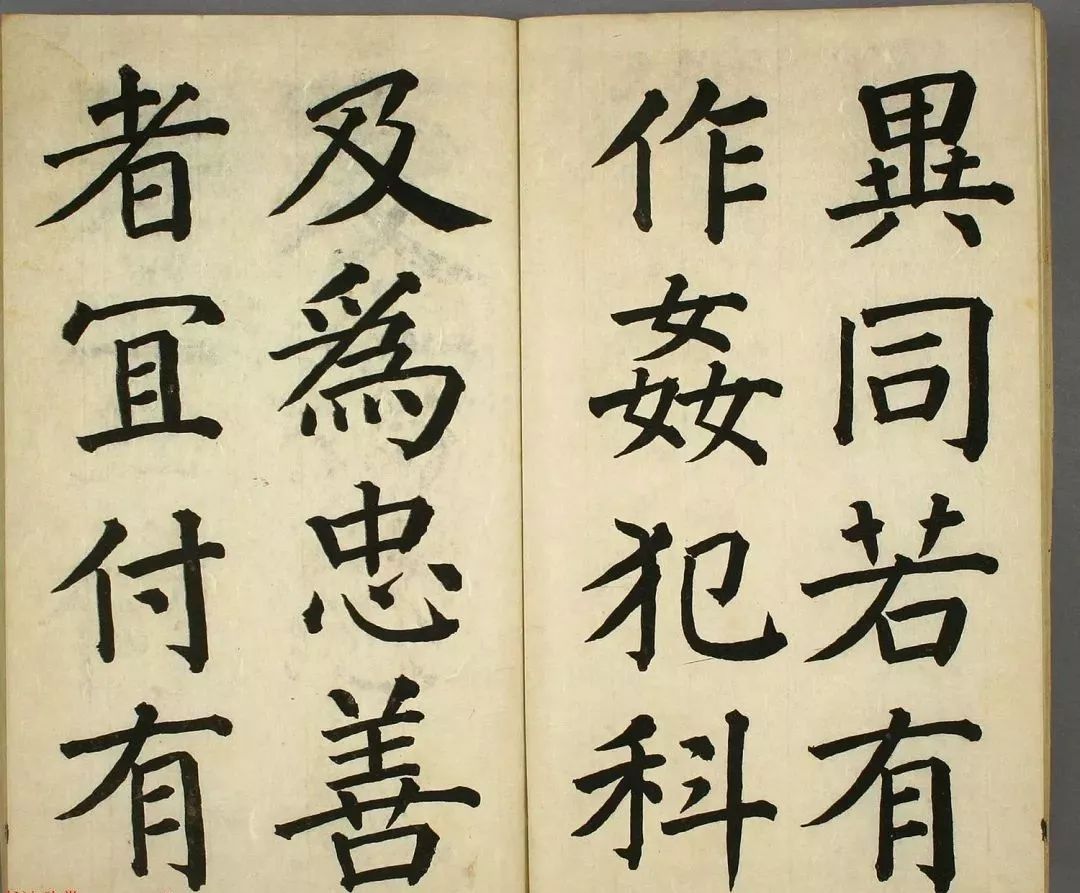 異同若有
作姦犯科
及爲忠善
者宜付有